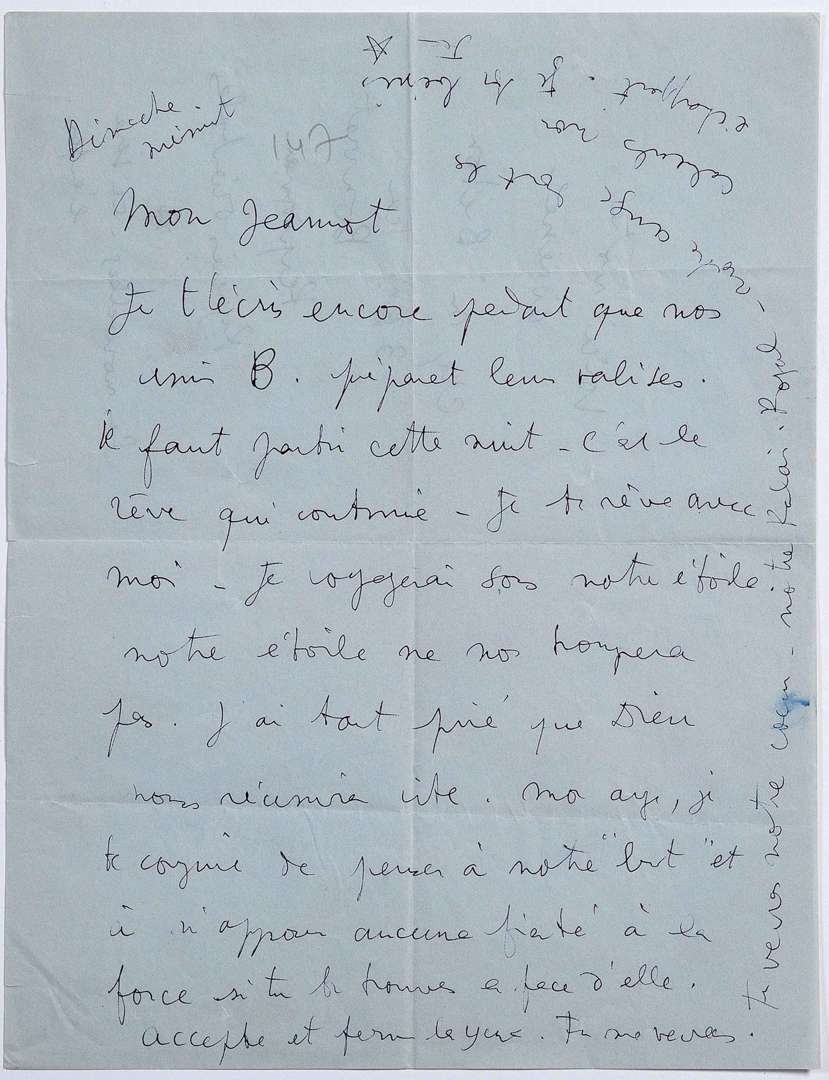 Dimanche
minuit
147
Mon Jeannot
Je t'écris encore pendant que nos
amis B. préparent leurs valises.
Il faut partir cette nuit - c'est le
rêve qui continue - Je te rêve avec
moi - Je voyagerai sous notre étoile
notre étoile ne nous trompera
pas. J'ai tant prié que Dieu
nous réunira vite. Mon ange, je
te conjure de penser à notre "but" et
à n'opposer aucune fierté à la
force si tu te trouves en face d'elle.
Accepte et ferme les yeux. Tu me verras.
Tu verras notre cœur - notre Palais-Royal -
notre ange dont les
calculs nous
échappent. Je te bénis
Jean